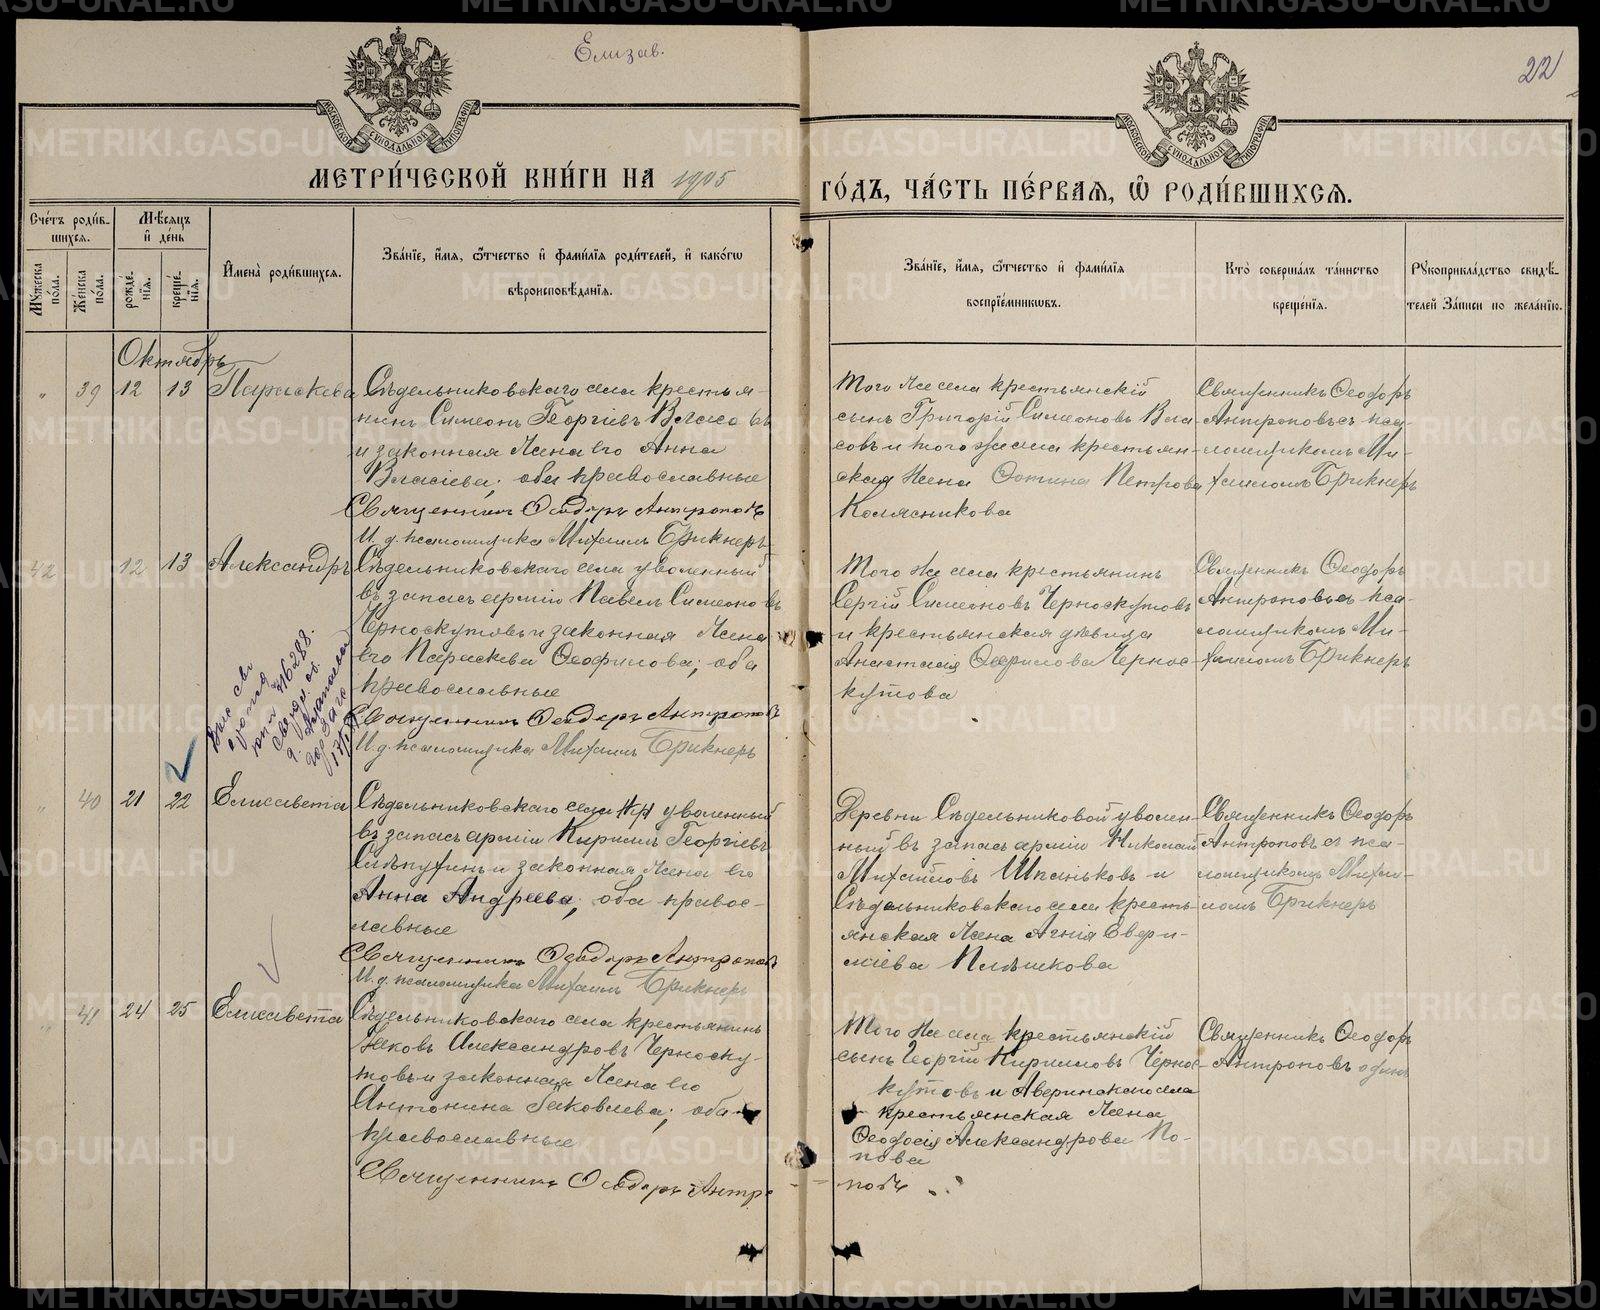 Елизав.
22
МОСКОВСКОЙ СѴНОДАЛЬНОЙ ТИПОГРАФІИ
МОСКОВСКОЙ СѴНОДАЛЬНОЙ ТИПОГРАФІИ
МЕТРИ́ЧЕСКОЙ КНИ́ГИ НА 1905
ГО́ДЪ, ЧА́СТЬ ПЕ́РВАЯ, Ѡ҆ РОДИ́ВШИХСЯ.
Сче́тъ роди́вшихся.
Мѣ́сяцъ и҆ де́нь
Мꙋ́жеска по́ла.
Же́нска по́ла.
рожде́нїя.
креще́нїя.
И҆мена̀ роди́вшихся.
Зва́нїе, и҆́мя, ѻ҆́тчество и҆ фами́лїя роди́телей, и҆ како́гѡ
вѣроисповѣ́данїя.
Зва́нїе, и҆́мя, ѻ҆́тчество и҆ фами́лїя
воспрїе́мникѡвъ.
Кто̀ соверша́лъ та́инство
креще́нїя.
Рꙋкоприкла́дство свидѣ́телей за́писи по жела́нїю.
Октябрь
" 39 12 13 Параскева
Сѣдельниковскаго села крестья-
нинъ Симеонъ Георгіевъ Власовъ
и законная жена его Анна
Власіева; оба православные
Священникъ Ѳеодоръ Антроповъ
И. д. псаломщика Михаилъ Брикнеръ
Того же села крестьянскій
сынъ Григорій Симеоновъ Вла
совъ и того же села крестьян-
ская жена Фотина Петрова
Колясникова
Священникъ Ѳеодоръ
Антроповъ съ пса-
ломщикомъ Ми-
хаиломъ Брикнеръ
42 12 13 Александръ
Сѣдельниковскаго села уволенный
въ запасъ арміи Павелъ Симеоновъ
Черноскутовъ и законная жена
его Параскева Ѳеофилова; оба
православные
Священникъ Ѳеодоръ Антроповъ
И. д. псаломщика Михаилъ Брикнеръ
716288.
Того же села крестьянинъ
Сергій Симеоновъ Черноскутовъ
и крестьянская дѣвица
Анастасія Ѳеофилова Чернос-
кутова
Священникъ Ѳеодоръ
Антроповъ съ пса-
ломщикомъ Ми-
хаиломъ Брикнеръ
" 40 21 22 Елисавета
Сѣдельниковскаго села уволенный
въ запасъ арміи Кириллъ Георгіевъ
и законная жена его
Анна Андреева; оба правос-
лавные
Священникъ Ѳеодоръ Антроповъ
И. д. псаломщика Михаилъ Брикнеръ
Деревни Сѣдельниковой уволен-
ный въ запасъ арміи Николай
Михайловъ Шпаньковъ и
Сѣдельниковскаго села кресть-
янская жена Агнія
Плѣшкова
Священникъ Ѳеодоръ
Антроповъ съ пса-
ломщикомъ Михаи-
ломъ Брикнеръ
" 41 24 25 Елисавета
Сѣдельниковскаго села крестьянинъ
Яковъ Александровъ Черноску-
товъ и законная жена его
Антонина Яковлева; оба
православные
Священникъ Ѳеодоръ Антро
Того же села крестьянскій
сынъ Георгій Кирилловъ Чернос-
кутовъ и Аверинскаго села
крестьянская жена
Ѳеодосія Александрова По-
пова
повъ
Священникъ Ѳеодоръ
Антроповъ одинъ
METRIKI.GASO-URAL.RU